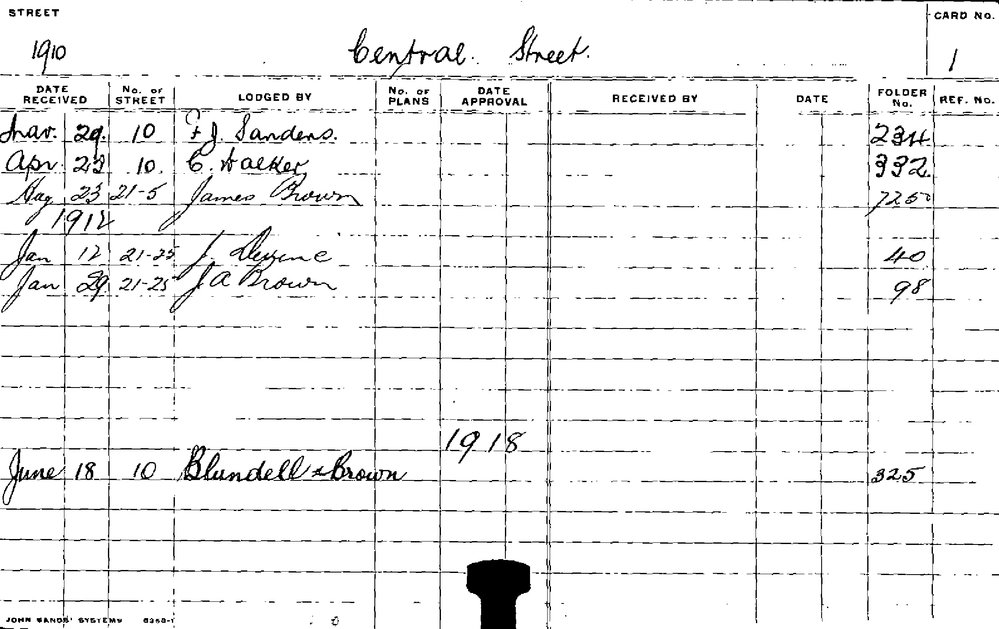 STREET CARD No.
1910 Central Street. 1
DATE RECEIVED No. OF STREET LODGED BY No. OF PLANS DATE APPROVAL RECEIVED BY DATE FOLDER No. REF. No.
Mar. 29. 10 F J. Sanders. 234
Apr. 23 10. C. Walker 332
Aug 23 21-5 James Brown 7250
1912
Jan 12 21-25 J. 40
Jan 29. 21-25 J A Brown 98
1918
June 18 10 Blundell & Brown 325
JOHN SANDS' SYSTEMS 6350-1